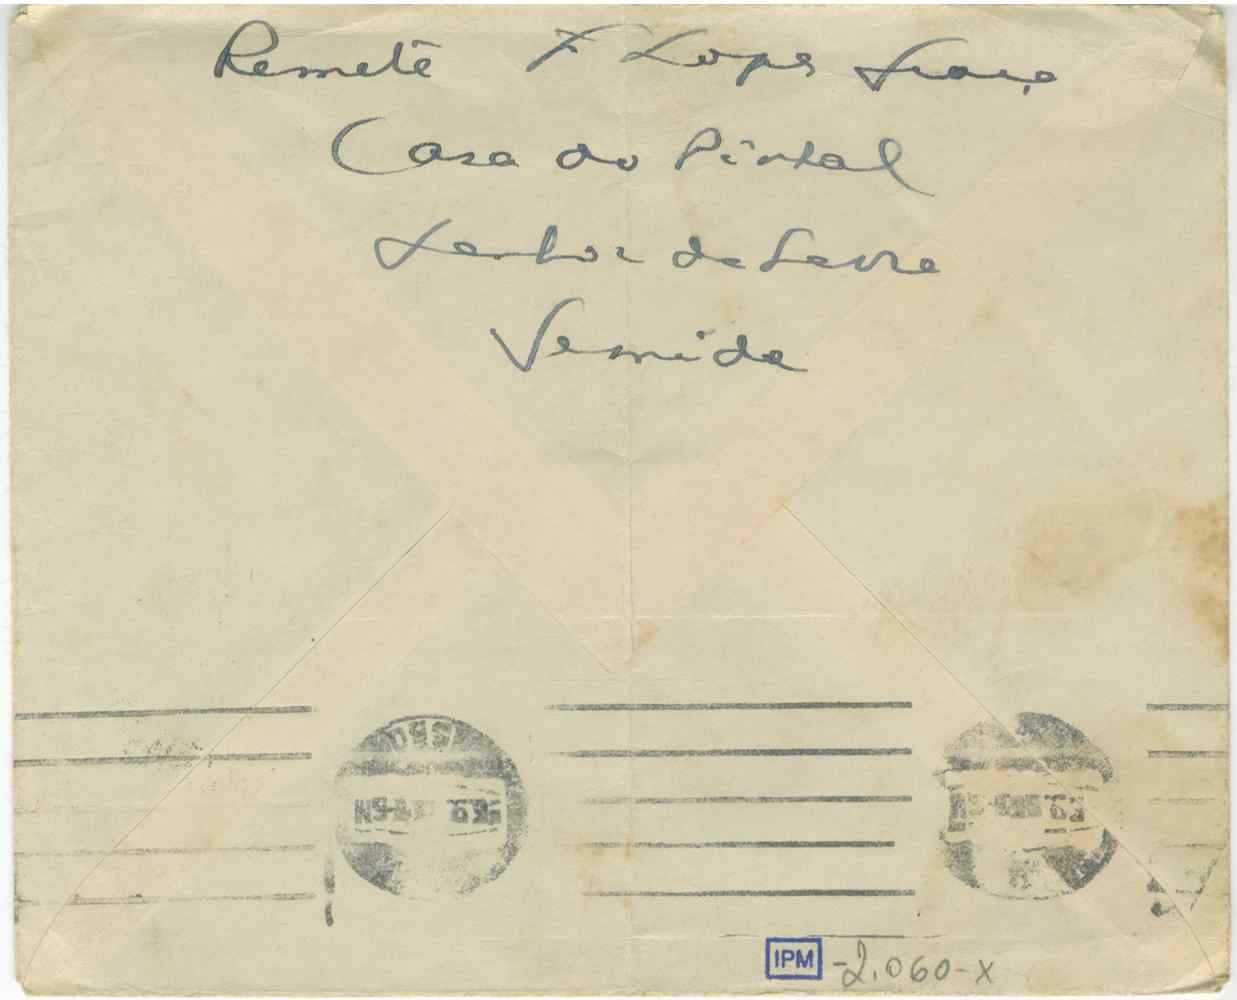 Remete F Lopes Graça
Casa do Pinhal
Senhor da Serra
Semide
IPM -2.060-X